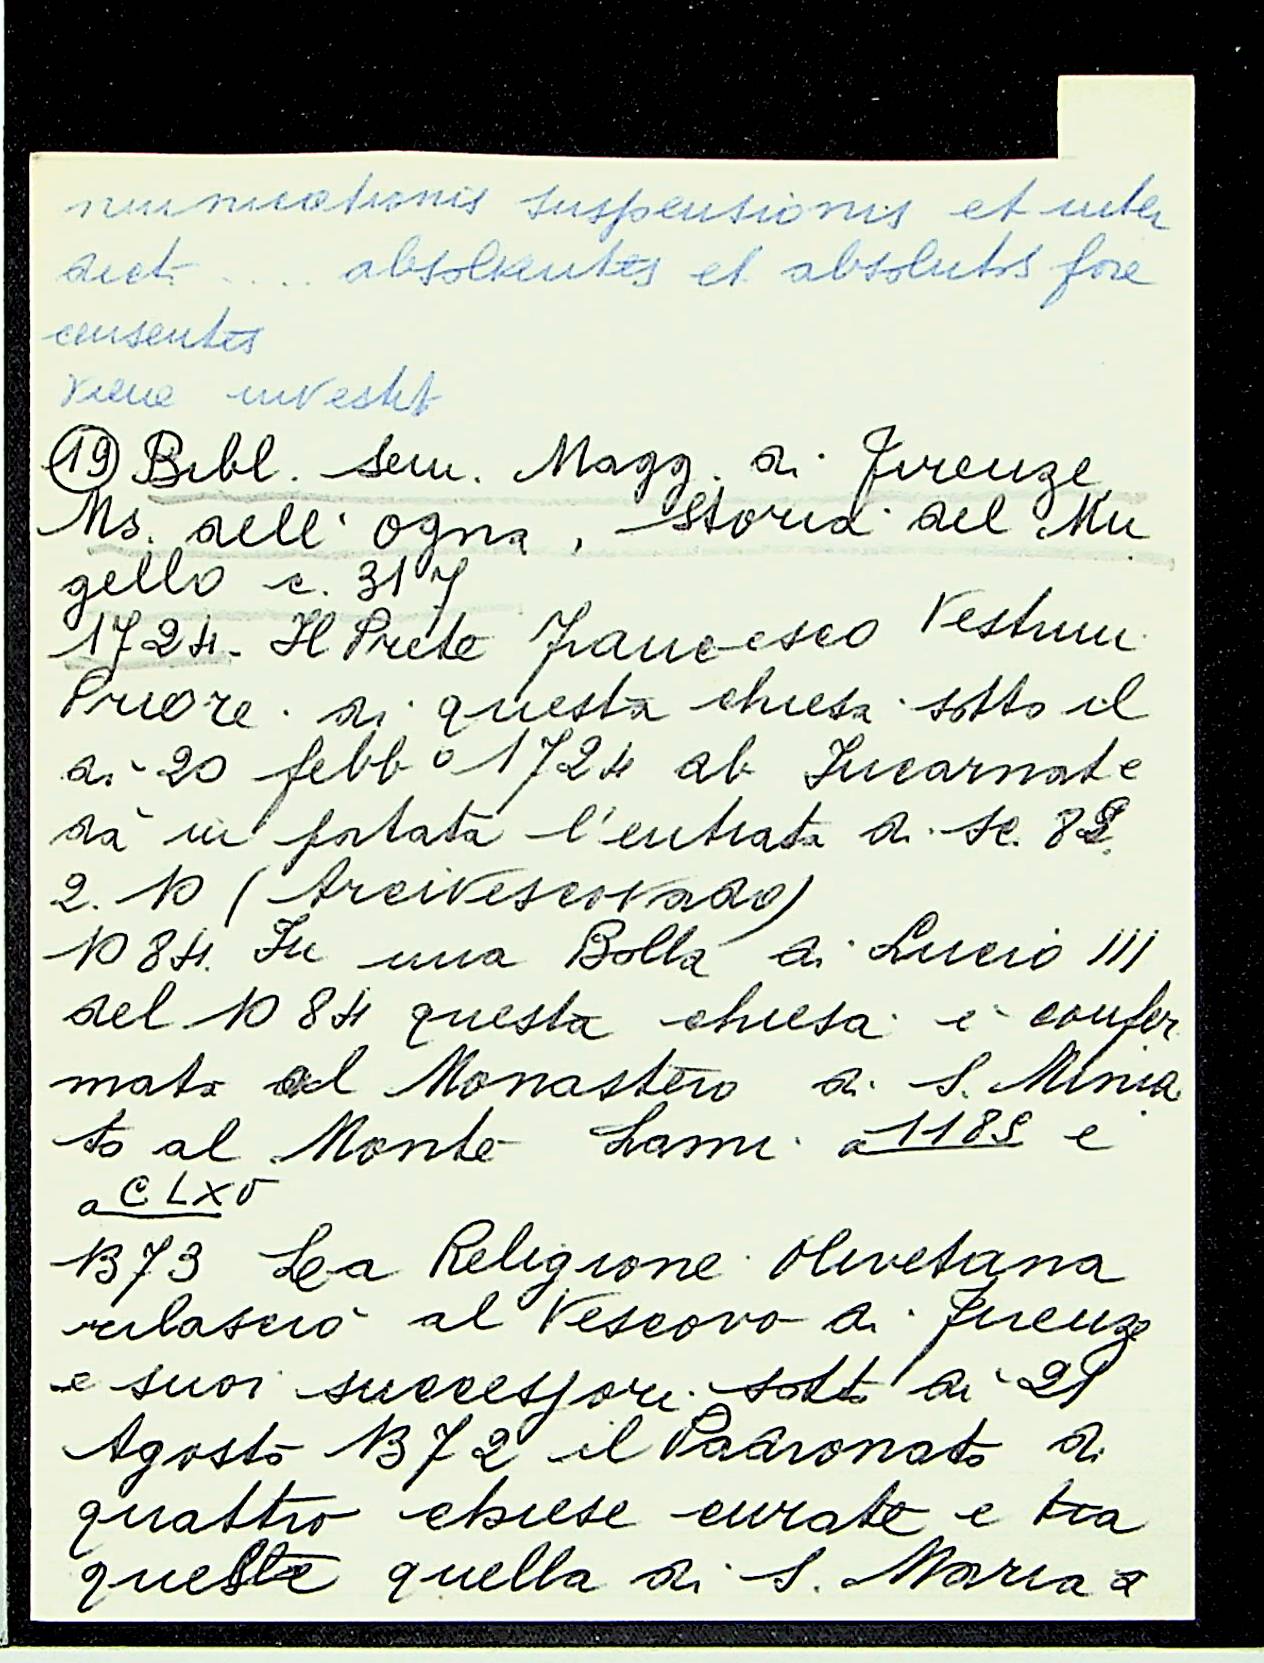 nunicationis suspensionis et inter
dicti .... absolventes et absolutos fore
censentes
viene investito
(19) Bibl. Sem. Magg. di Firenze
Ms. dell'Ogna, Storia del Mu
gello c. 317
1724. Il Prete Francesco Vestrini
Priore di questa chiesa sotto il
dì 20 febb° 1724 ab Incarnate
dà in portata l'entrata di sc. 82.
2. 10 (Arcivescovado)
1084. In una Bolla di Lucio III
del 1084 questa chiesa è confer
mata al Monastero di S. Minia
to al Monte Lami a 1189 e
a CLXV
1373 La Religione Olivetana
rilasciò al Vescovo di Firenze
e suoi successori sotto dì 21
Agosto 1372 il Padronato di
quattro chiese curate e tra
queste quella di S. Maria a